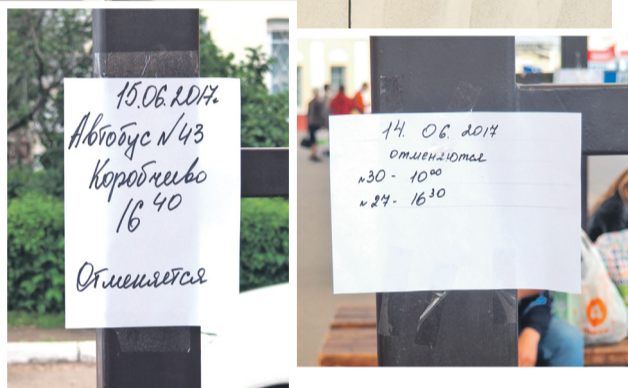 15.06.2017г.
Автобус №43
Коробчеево
16 40
Отменяется
14. 06. 2017
отменяются
№30 - 10 00
№27 - 16 30